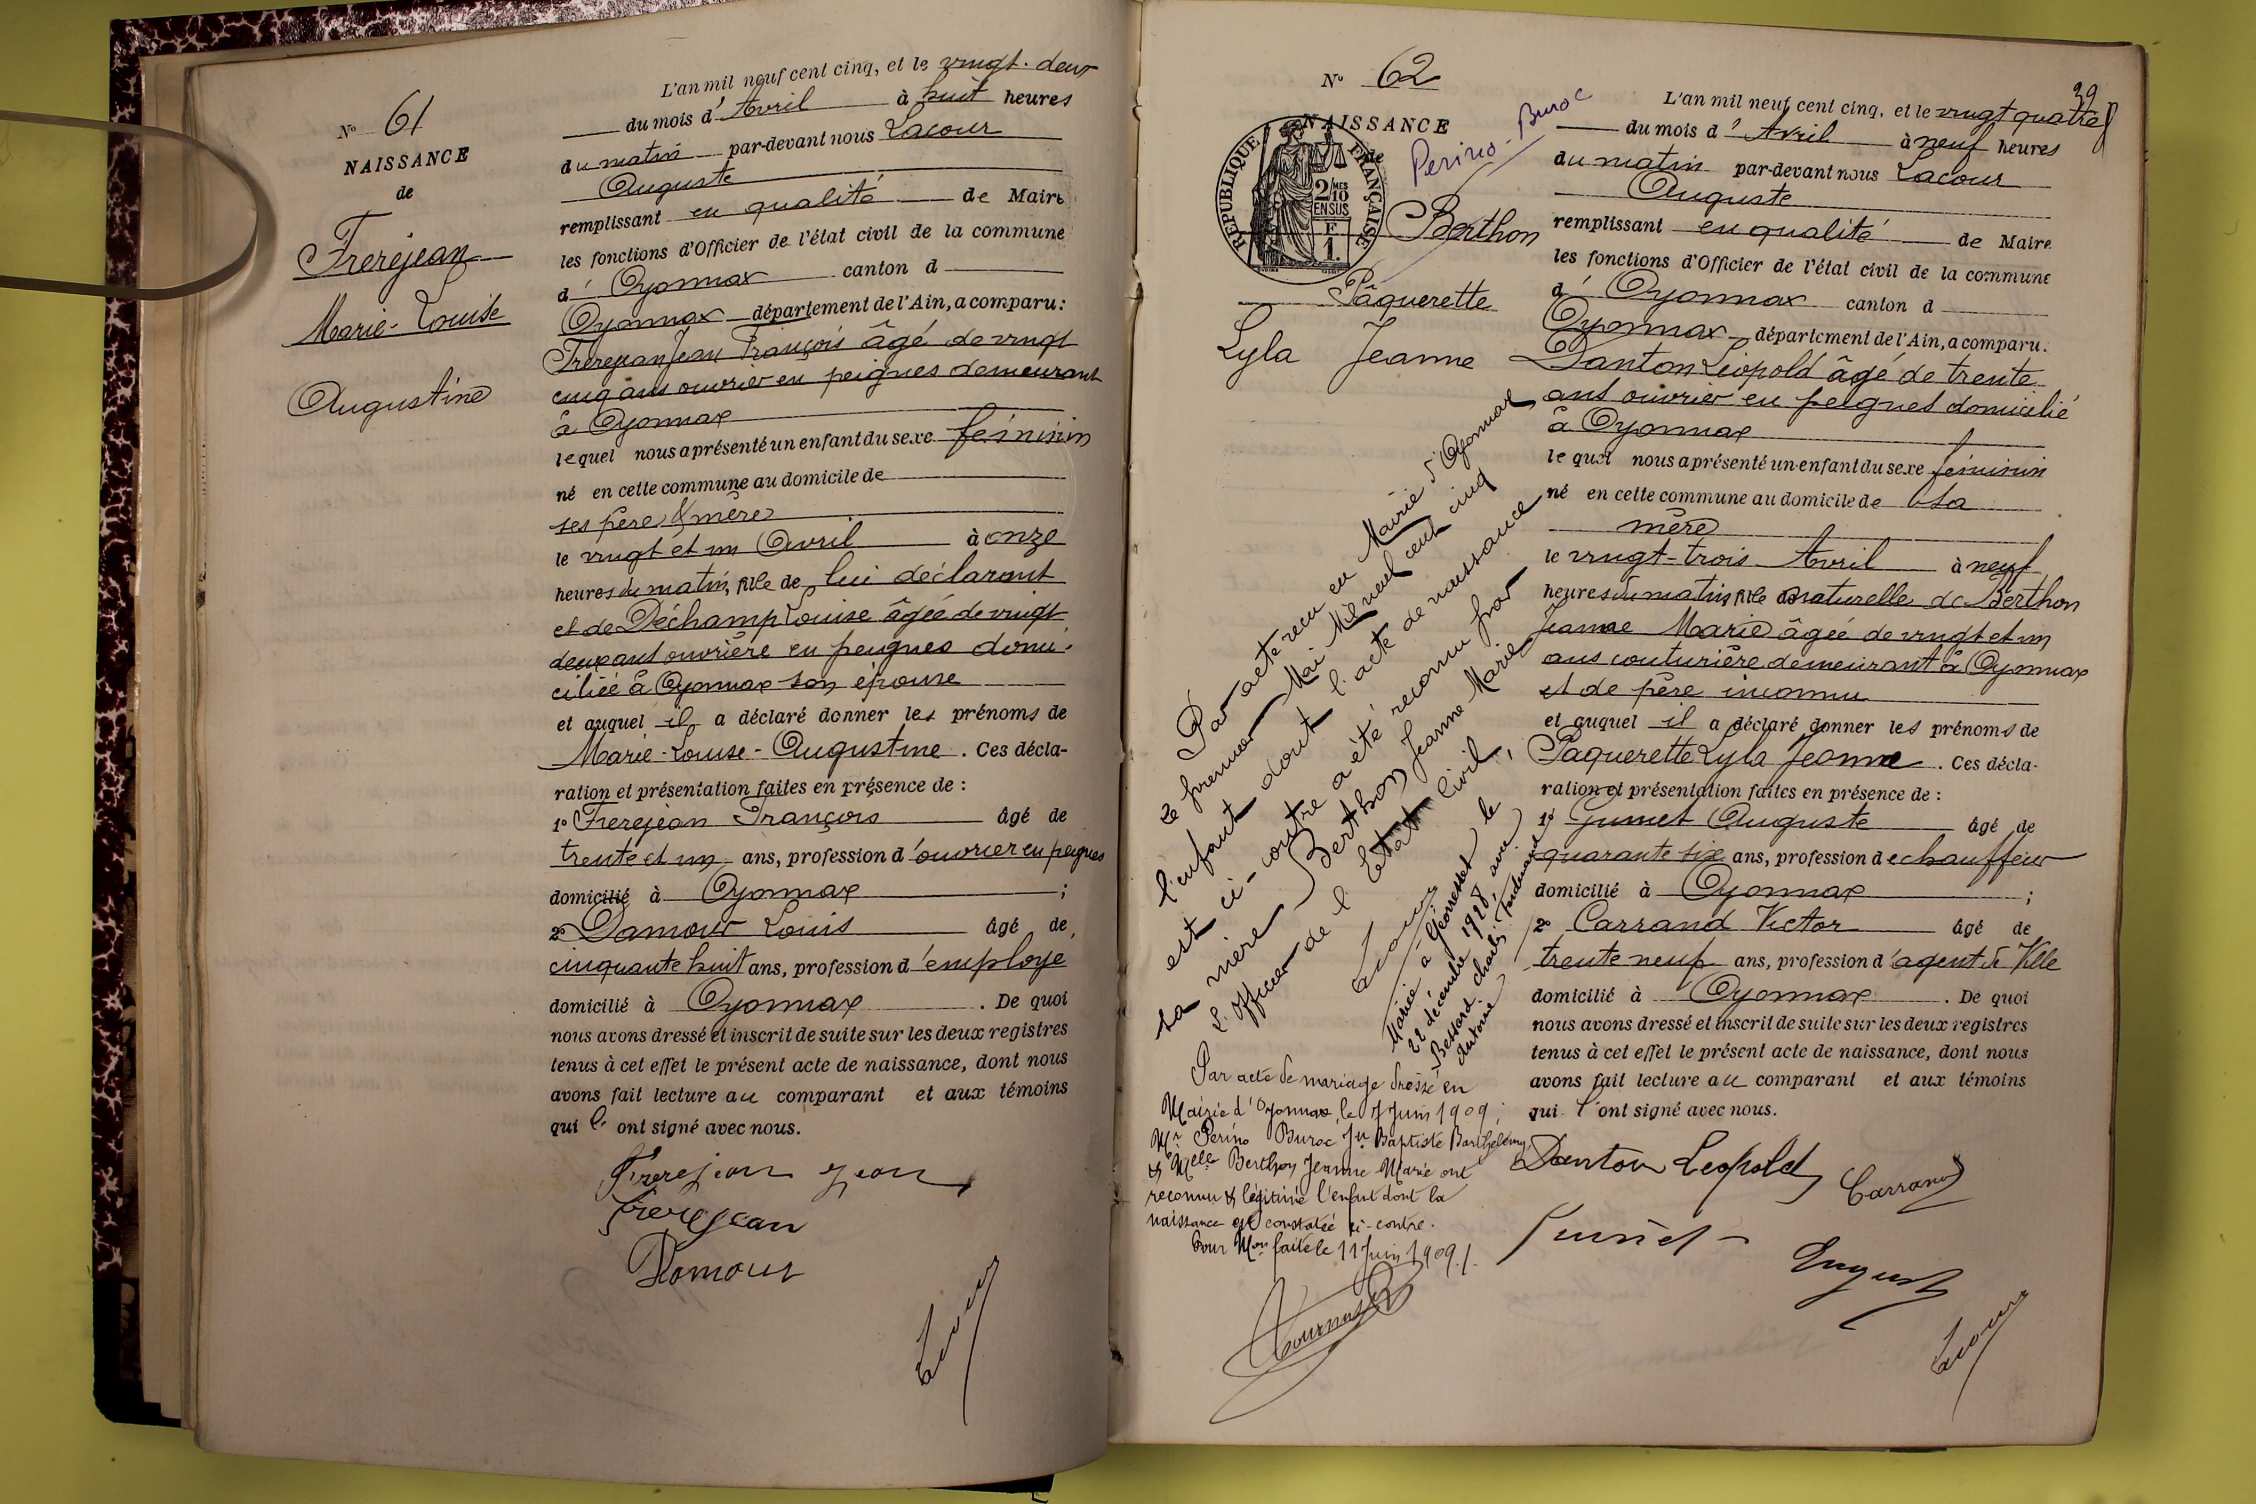 N° 61
NAISSANCE
de
Frerejean
Marie-Louise
Augustine
L'an mil neuf cent cinq, et le vingt-deux
du mois d'Avril à huit heures
du matin par-devant nous Lacour
Auguste
remplissant en qualité de Maire
les fonctions d'Officier de l'état civil de la commune
d'Oyonnax canton d
Oyonnax département de l'Ain, a comparu:
Frerejean Jean François âgé de vingt
cinq ans ouvrier en peignes demeurant
à Oyonnax
lequel nous a présenté un enfant du sexe féminin
né en cette commune au domicile de
ses père & mère
le vingt et un Avril à onze
heures du matin, fille de lui déclarant
et de Déchamp Louise âgée de vingt
deux ans ouvrière en peignes domi-
ciliée à Oyonnax son épouse
et auquel il a déclaré donner les prénoms de
Marie-Louise-Augustine. Ces décla-
ration et présentation faites en présence de :
1° Frerejean François âgé de
trente et un ans, profession d'ouvrier en peignes
domicilié à Oyonnax ;
2° Damour Louis âgé de
cinquante huit ans, profession d'employé
domicilié à Oyonnax. De quoi
nous avons dressé et inscrit de suite sur les deux registres
tenus à cet effet le présent acte de naissance, dont nous
avons fait lecture au comparant et aux témoins
qui l' ont signé avec nous.
Frerejean Jean
Frerejean
Damour
Lacour
39
N° 62
NAISSANCE
de
REPUBLIQUE FRANÇAISE
2/10 MES
EN SUS
F
1.
Perino-Buroc
Berthon
Pâquerette
Lyla Jeanne
L'an mil neuf cent cinq, et le vingt quatre
du mois d'Avril à neuf heures
du matin par-devant nous Lacour
Auguste
remplissant en qualité de Maire
les fonctions d'Officier de l'état civil de la commune
d'Oyonnax canton d
Oyonnax département de l'Ain, a comparu.
Danton Léopold âgé de trente
ans ouvrier en peignes domicilié
à Oyonnax
lequel nous a présenté un enfant du sexe féminin
né en cette commune au domicile de sa
mère
le vingt-trois Avril à neuf
heures du matin, fille naturelle de Berthon
Jeanne Marie âgée de vingt et un
ans couturière demeurant à Oyonnax
et de père inconnu
et auquel il a déclaré donner les prénoms de
Paquerette Lyla Jeanne. Ces décla-
ration et présentation faites en présence de :
1° Gumet Auguste âgé de
quarante six ans, profession de chauffeur
domicilié à Oyonnax ;
2° Carrand Victor âgé de
trente neuf ans, profession d'agent de Ville
domicilié à Oyonnax. De quoi
nous avons dressé et inscrit de suite sur les deux registres
tenus à cet effet le présent acte de naissance, dont nous
avons fait lecture au comparant et aux témoins
qui l'ont signé avec nous.
Danton Léopold
Carrand
Auguste
Lacour
Par acte reçu en Mairie d'Oyonnax
le premier Mai Mil neuf cent cinq
l'enfant dont l'acte de naissance
est ci-contre a été reconnu par
sa mère Berthon Jeanne Marie
L'Officier de l'Etat Civil,
Lacour
Mariée à Géovresset le
22 décembre 1928, avec
Bessard Charles Ferdinand
Antoine
Par acte de mariage dressé en
Mairie d'Oyonnax, le 7 Juin 1909,
Mr Perino Buroc Jn Baptiste Barthélemy
& Melle Berthon Jeanne Marie ont
reconnu & légitimé l'enfant dont la
naissance est constatée ci-contre.
Pour Mon faite le 11 Juin 1909./.